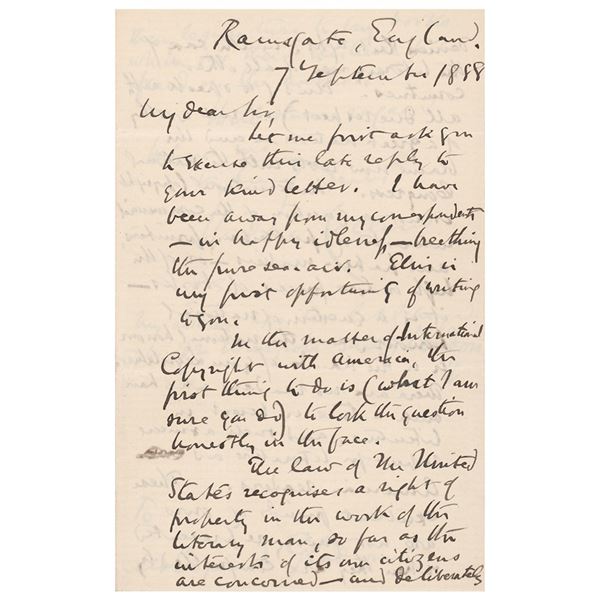 Ramsgate, England.
7 September 1888
My dear Sir,
Let me first ask you
to excuse this late reply to
your kind letter. I have
been away from my correspondents
— in happy idleness — breathing
the pure sea air. This is
my first opportunity of writing
to you.
In the matter of International
Copyright with America, the
first thing to do is (what I am
sure you do) to look the question
honestly in the face.
The law of the United
States recognises a right of
property in the work of the
literary man, so far as the
interests of its own citizens
are concerned — and deliberately